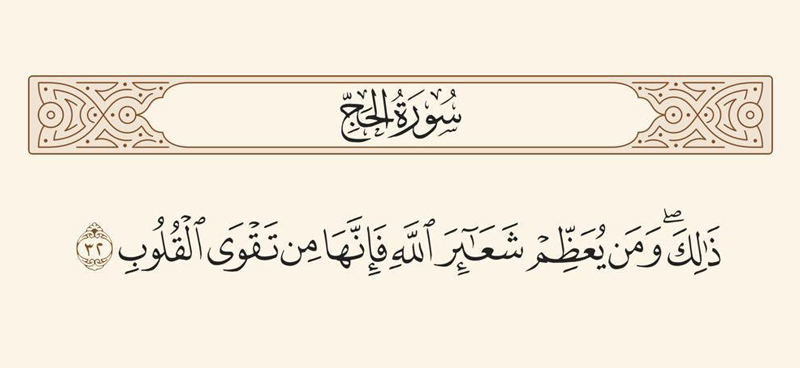 سُورَةُ الحَجِّ
ذَٰلِكَۖ وَمَن يُعَظِّمْ شَعَـٰٓئِرَ ٱللَّهِ فَإِنَّهَا مِن تَقْوَى ٱلْقُلُوبِ ٣٢